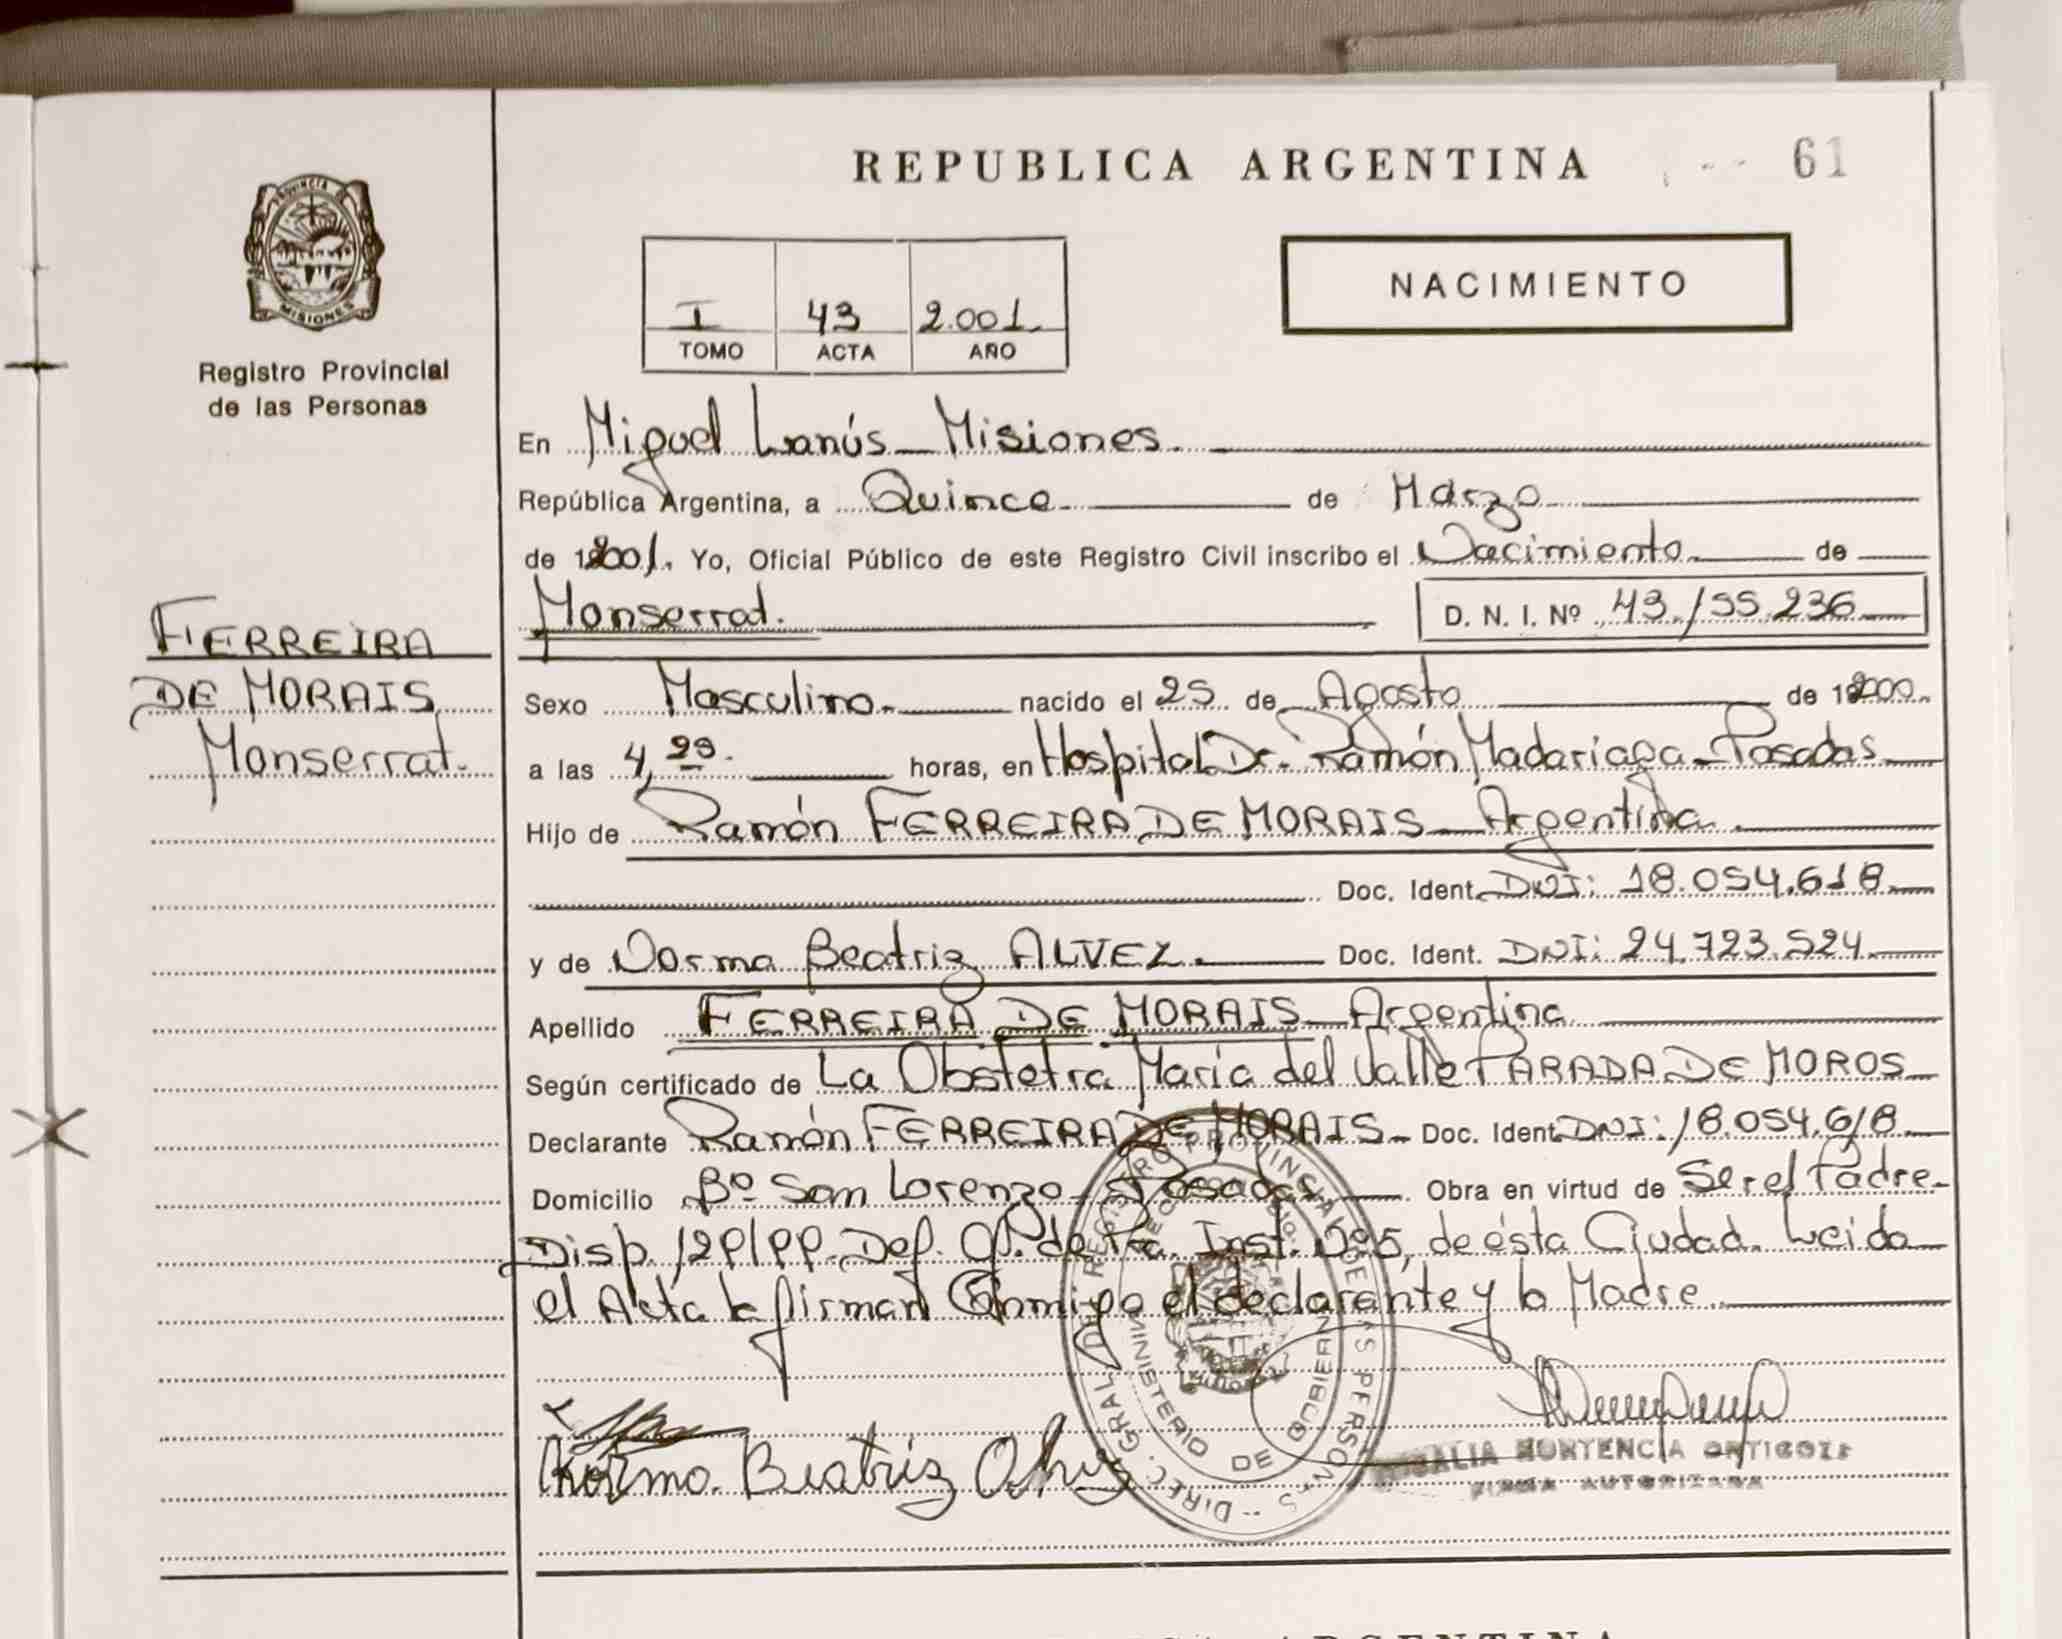 REPUBLICA ARGENTINA
61
PROVINCIA DE
MISIONES
Registro Provincial
de las Personas
I 43 2.001
TOMO ACTA AÑO
NACIMIENTO
En Miguel Lanús - Misiones.
República Argentina, a Quince de Marzo
de 2001. Yo, Oficial Público de este Registro Civil inscribo el Nacimiento de
Monserrat. D. N. I. Nº 43.155.236
FERREIRA
DE MORAIS
Monserrat.
Sexo Masculino. nacido el 25 de Agosto de 2000.
a las 4, horas, en Hospital Dr. Ramón Madariaga - Posadas
Hijo de Ramón FERREIRA DE MORAIS - Argentina.
Doc. Ident. DNI: 18.054.618
y de Norma Beatriz ALVEZ. Doc. Ident. DNI: 24.723.524
Apellido FERREIRA DE MORAIS - Argentina
Según certificado de La Obstetra María del Valle PARADA DE MOROS
Declarante Ramón FERREIRA DE MORAIS - Doc. Ident. DNI: 18.054.618
Domicilio Bº San Lorenzo - Posadas. Obra en virtud de Ser el Padre -
Disp. Def. Of. de Inst. Nº5, de ésta Ciudad. Leida
el Acta la firman Conmigo el declarante y la Madre
Norma Beatriz Alvez
HORTENCIA
FIRMA AUTORIZADA
DIREC. GRAL DEL REGISTRO PROVINCIAL DE LAS PERSONAS
MINISTERIO DE GOBIERNO